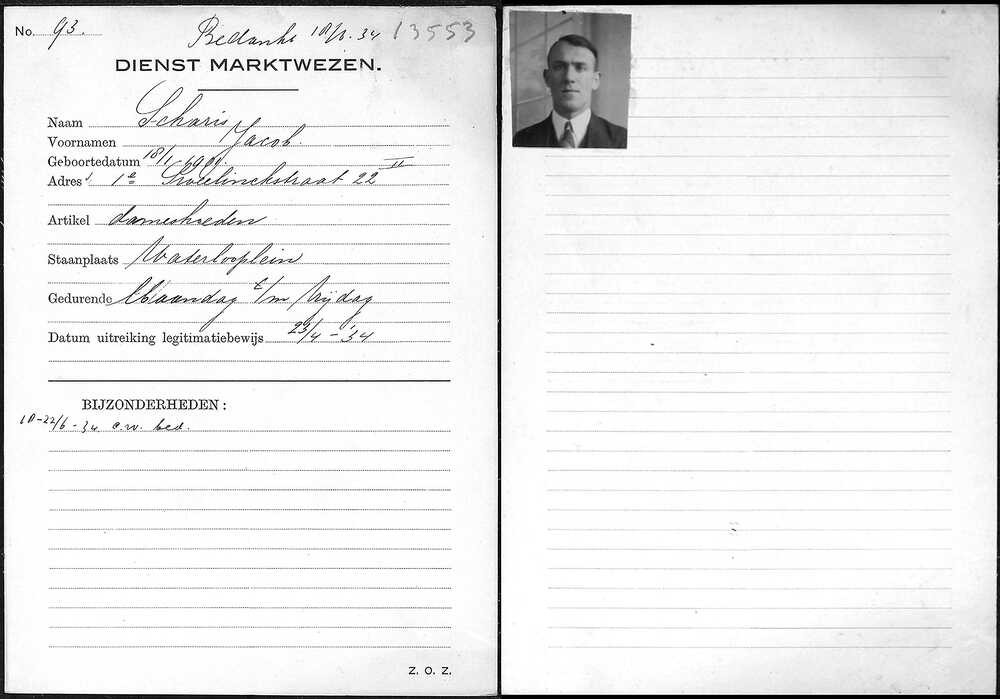 No. 93.
Bedankt 18/6.34 13553
DIENST MARKTWEZEN.
Naam Scharis
Voornamen Jacob.
Geboortedatum 18/1
Adres 1e Sweelinckstraat 22 II
Artikel dameshoeden
Staanplaats Waterlooplein
Gedurende Maandag t/m Vrijdag
Datum uitreiking legitimatiebewijs 23/4 - '34
BIJZONDERHEDEN:
22/6 - 34 c.w. bed.
Z. O. Z.